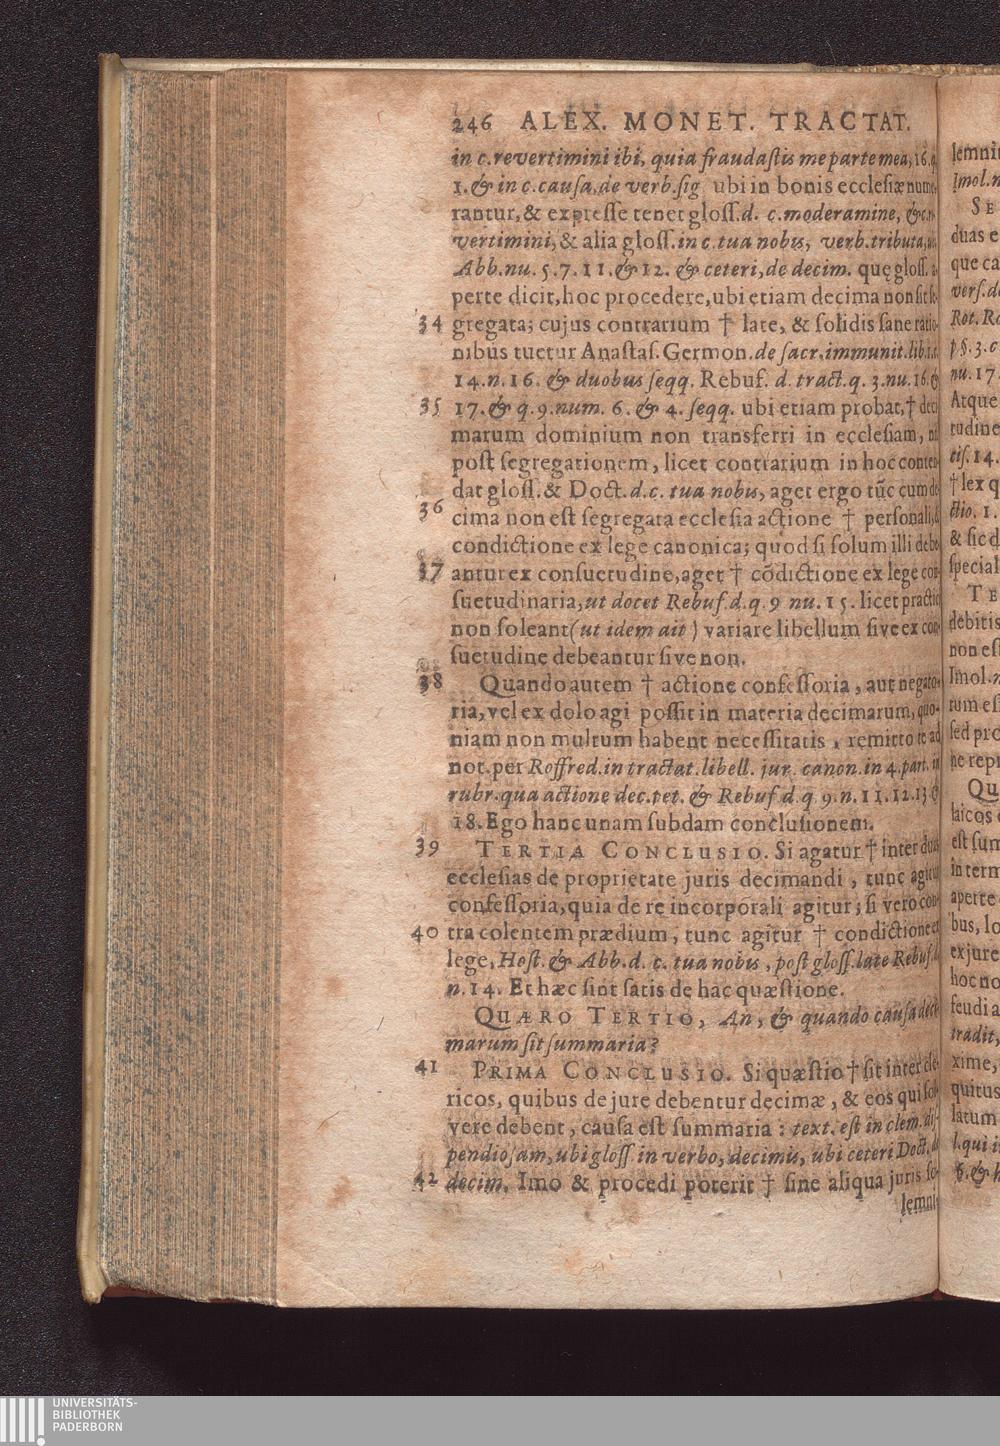 246 ALEX. MONET. TRACTAT.
in c. revertimini ibi, quia fraudaſtis me parte mea, 16. q.
1. & in c. cauſa, de verb. ſig. ubi in bonis ecclesiæ nume-
rantur, & expreſſe tenet gloſſ. d. c. moderamine, & c. re-
vertimini, & alia gloſſ. in c. tua nobis, verb. tributa,
Abb. nu. 5. 7. 11. & 12. & ceteri, de decim. quę gloſſ. a-
perte dicit, hoc procedere, ubi etiam decima non ſit ſe-
34 gregata; cujus contrarium † late, & ſolidis ſane ratio-
nibus tuetur Anaſtaſ. Germon. de ſacr. immunit. lib. 1. c.
14. n. 16. & duobus ſeqq. Rebuf. d. tract. q. 3. nu. 16. &
35 17. & q. 9. num. 6. & 4. ſeqq. ubi etiam probat, † deci
marum dominium non transferri in ecclesiam, ni
poſt ſegregationem, licet contrarium in hoc conten-
dat gloſſ. & Doct. d. c. tua nobis, aget ergo tūc cum de
36 cima non eſt ſegregata ecclesia actione † perſonali,
condictione ex lege canonica; quod ſi ſolum illi debe
37 antur ex conſuetudine, aget † cōdictione ex lege con-
ſuetudinaria, ut docet Rebuf. d. q. 9 nu. 15. licet practic
non ſoleant (ut idem ait) variare libellum ſive ex con-
ſuetudine debeantur ſive non.
38 Quando autem † actione confeſſoria, aut negato-
ria, vel ex dolo agi poſſit in materia decimarum, quo-
niam non multum habent neceſſitatis, remitto te ad
not. per Roffred. in tractat. libell. jur. canon. in 4. part. in
rubr. qua actione dec. pet. & Rebuf. d. q. 9. n. 11. 12. 13 &
18. Ego hanc unam ſubdam concluſionem.
39 TERTIA CONCLUSIO. Si agatur † inter duas
ecclesias de proprietate juris decimandi, tunc agitur
confeſſoria, quia de re incorporali agitur; ſi vero con-
40 tra colentem prædium, tunc agitur † condictione ex
lege, Hoſt. & Abb. d. c. tua nobis, poſt gloſſ. late Rebuf. d.
n. 14. Et hæc ſint ſatis de hac quæſtione.
QUÆRO TERTIO, An, & quando cauſa deci-
marum ſit ſummaria?
41 PRIMA CONCLUSIO. Si quæſtio † ſit inter cle-
ricos, quibus de jure debentur decimæ, & eos qui ſol-
vere debent, cauſa eſt ſummaria: text. eſt in clem. diſ-
pendioſam, ubi gloſſ. in verbo, decimis, ubi ceteri Doct. de
42 decim. Imo & procedi poterit † ſine aliqua juris ſo-
lemni-
lemnit
Imol. n
SE
duas e
que ca
verſ. de
Rot. Ro
p §. 3. c
nu. 17.
Atque
tudine
tiſ. 14.
† lex q
ctio. 1.
& ſic d
ſpecial
TE
debitis
non eſt
Imol. n
rum eſ
ſed pro
ne repr
QU
laicos
eſt ſum
in term
aperte
bus, lo
ex jure
hoc no
feudi a
tradit,
xime,
quitus
latum
l. qui i
6. & h
UNIVERSITÄTS-
BIBLIOTHEK
PADERBORN